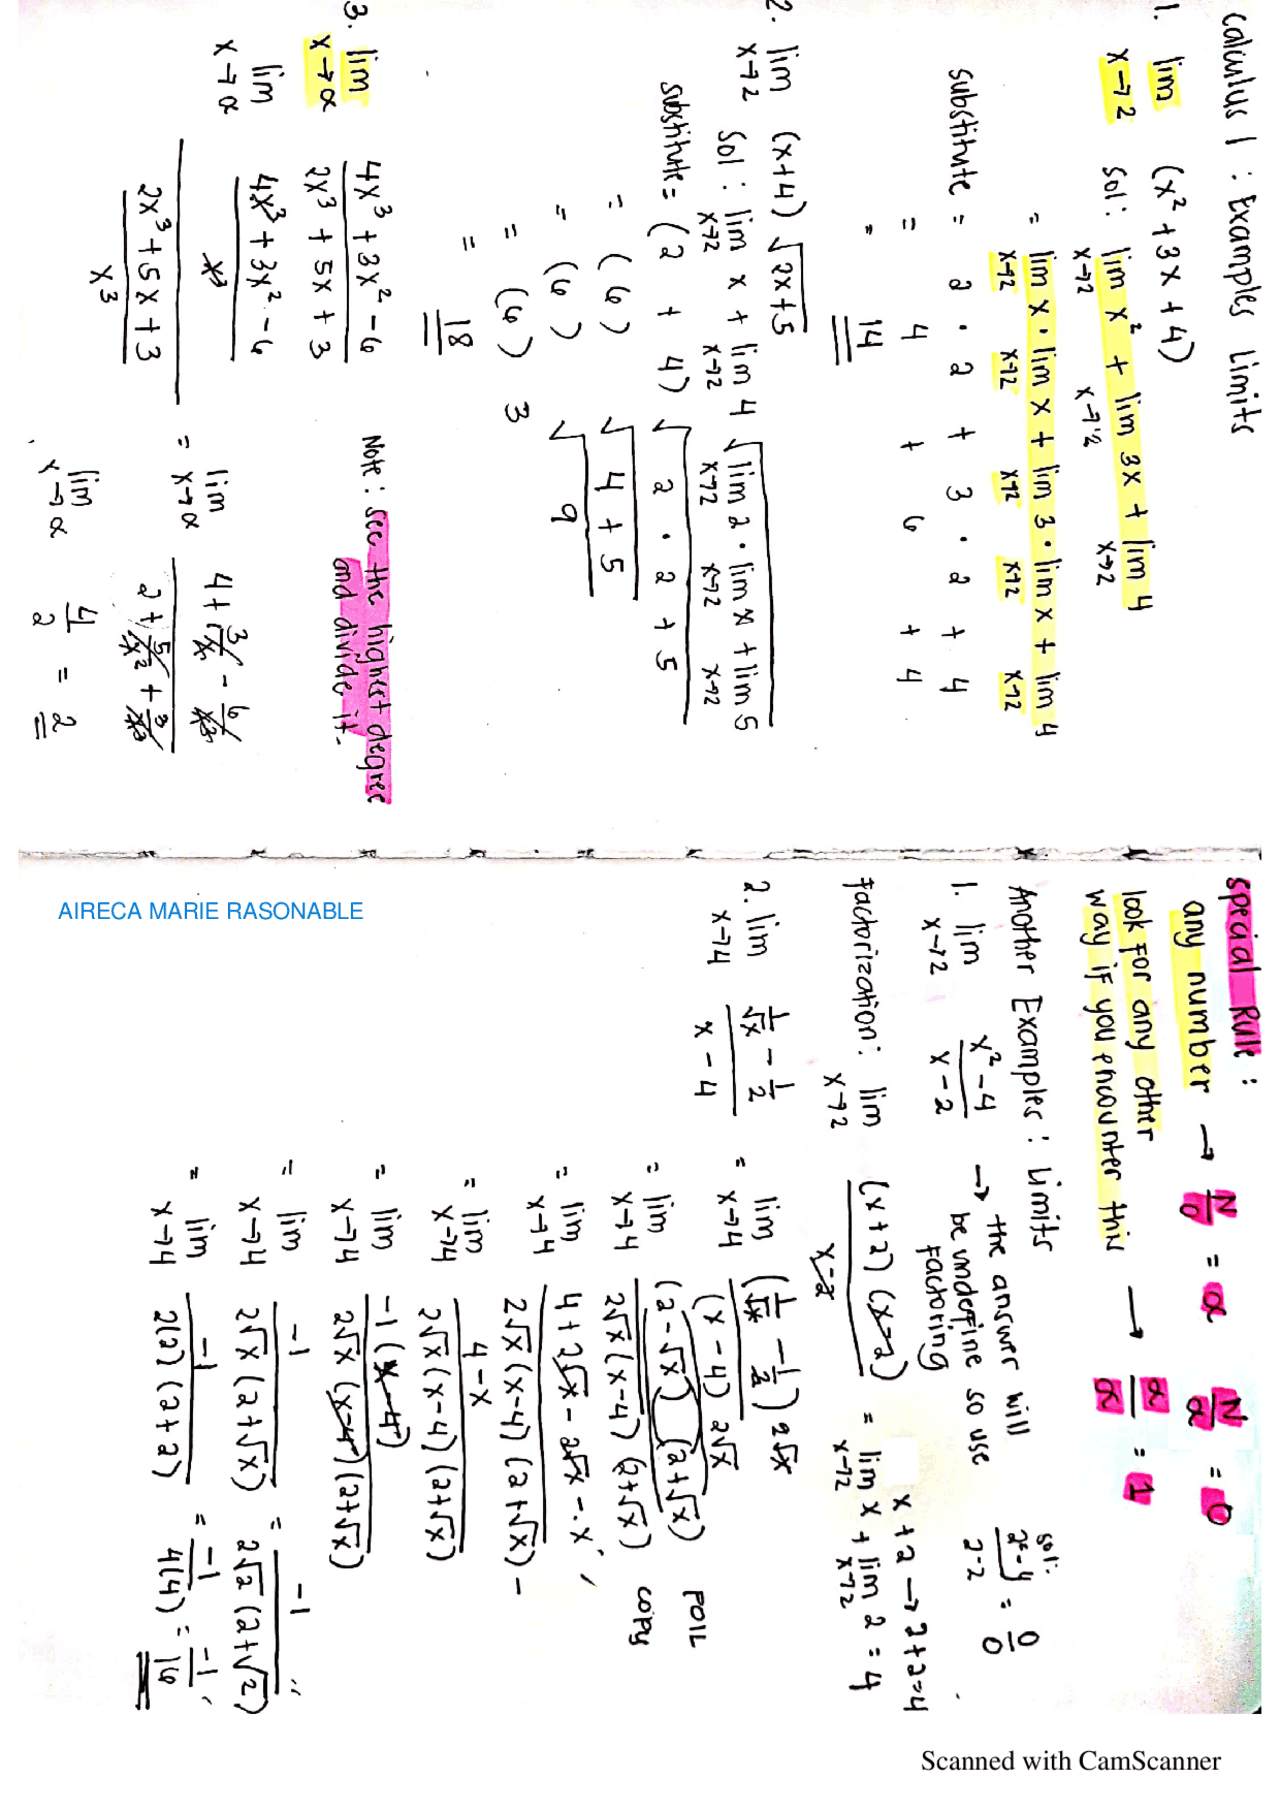 Calculus 1 : Examples Limits
1. lim x→2 (x² + 3x + 4)
Sol: lim x→2 x² + lim x→2 3x + lim x→2 4
= lim x→2 x · lim x→2 x + lim x→2 3 · lim x→2 x + lim x→2 4
substitute = 2 · 2 + 3 · 2 + 4
= 4 + 6 + 4
= 14
2. lim x→2 (x+4) √2x+5
Sol : lim x→2 x + lim x→2 4 √lim x→2 2 · lim x→2 x + lim x→2 5
substitute = (2 + 4) √2 · 2 + 5
= (6) √4 + 5
= (6) √9
= (6) 3
= 18
3. lim x→α 4x³ + 3x² - 6 / 2x³ + 5x + 3
Note : see the highest degree
and divide it.
lim x→α 4x³ + 3x² - 6 / x³ / 2x³ + 5x + 3 / x³ = lim x→α 4 + 3/x - 6/x³ / 2 + 5/x² + 3/x³
lim x→α 4/2 = 2
special Rule :
any number → N/0 = α N/α = 0
look for any other
way if you encounter this → α/α = 1
Another Examples : Limits
1. lim x→2 x² - 4 / x - 2 → the answer will
be undefine so use
factoring
sol: 2² - 4 / 2 - 2 = 0/0
x + 2 → 2 + 2 = 4
Factorization: lim x→2 (x + 2) (x-2) / x-2 = lim x→2 x + lim x→2 2 = 4
2. lim x→4 1/√x - 1/2 / x - 4 = lim x→4 (1/√x - 1/2) 2√x / (x - 4) 2√x
= lim x→4 (2 - √x) (2+√x) / 2√x (x-4) (2+√x) FOIL copy
= lim x→4 4 + 2√x - 2√x - x / 2√x (x-4) (2+√x)
= lim x→4 4 - x / 2√x (x-4) (2+√x)
= lim x→4 -1 (x-4) / 2√x (x-4) (2+√x)
= lim x→4 -1 / 2√x (2+√x) = -1 / 2√2 (2+√2)
= lim x→4 -1 / 2(2) (2+2) = -1 / 4(4) = -1 / 16
AIRECA MARIE RASONABLE
Scanned with CamScanner